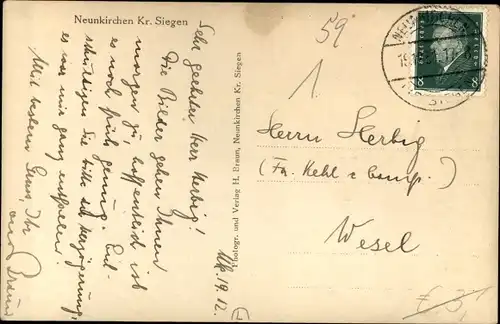 Neunkirchen Kr. Siegen
Sehr geehrter Herr Herbig!
Die Bilder gehen Ihnen
morgen zu, hoffentlich ist
es noch früh genug. Ent-
schuldigen Sie bitte die Verzögerung,
es war mir ganz entfallen!
Mit bestem Gruss, Ihr
Braun
Nk. 19.12.
Photogr. und Verlag H. Braun, Neunkirchen Kr. Siegen
59
1.
Herrn Herbig
(Fa. Kehl & Comp.)
Wesel
NEUNKIRCHEN
8
€ 3,